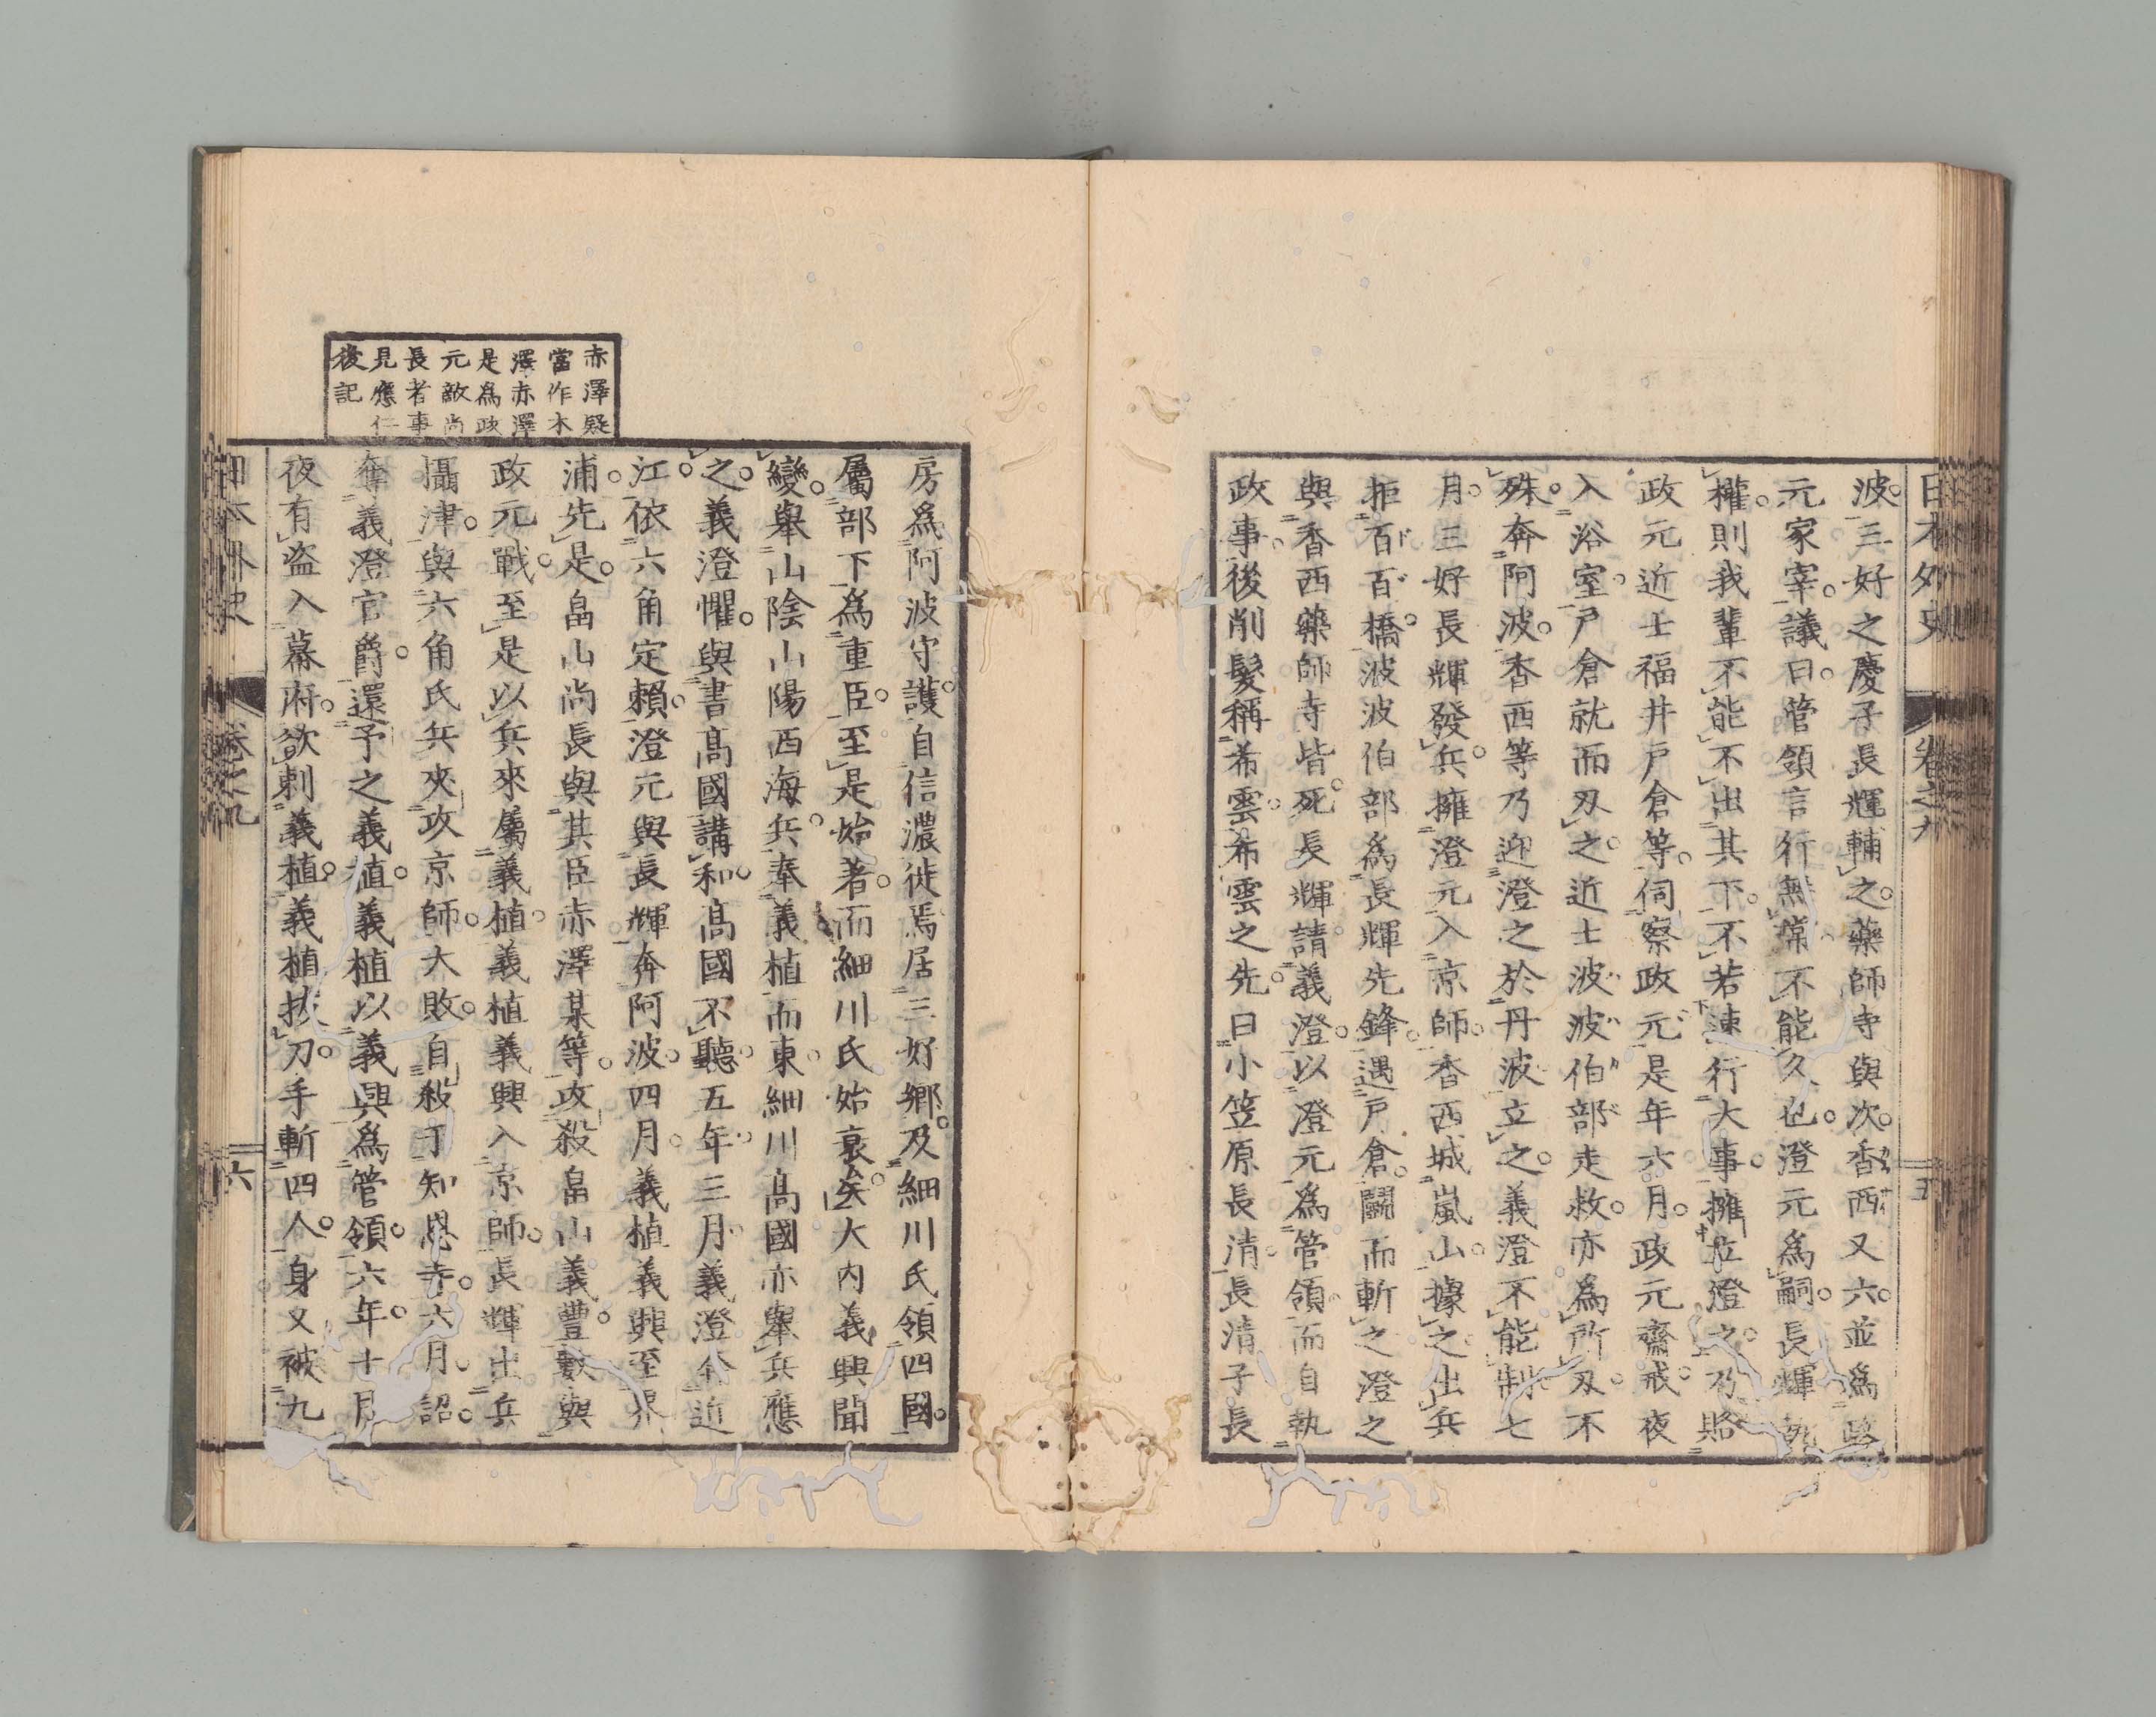 日本外史 卷之九 五
波三好之慶子長輝輔之藥師寺與次香西又六並爲政
元家宰議曰管領言行無常不能久也澄元爲嗣長輝
權則我輩不能不出其下不若速行大事擁立澄之乃賂
政元近士福井戸倉等伺察政元是年六月政元齋戒夜
入浴室戸倉就而刃之近士波波伯部走救亦爲所刃不
殊奔阿波香西等乃迎澄之於丹波立之義澄不能制七
月三好長輝發兵擁澄元入京師香西城嵐山據之出兵
拒百百橋波波伯部爲長輝先鋒遇戸倉鬪而斬之澄之
與香西藥師寺皆死長輝請義澄以澄元爲管領而自執
政事後削髮稱希雲希雲之先曰小笠原長清長清子長
房爲阿波守護自信濃徙焉居三好鄉及細川氏領四國
屬部下爲重臣至是始著而細川氏始衰矣大内義興聞
變舉山陰山陽西海兵奉義植而東細川高國亦舉兵應
之義澄懼與書高國講和高國不聽五年三月義澄奔近
江依六角定賴澄元與長輝奔阿波四月義植義興至界
浦先是畠山尚長與其臣赤澤某等攻殺畠山義豐數與
政元戰至是以兵來屬義植義植義興入京師長輝出兵
攝津與六角氏兵夾攻京師大敗自殺于知恩寺六月詔
奪義澄官爵還予之義植義植以義興爲管領六年十月
夜有盜入幕府欲刺義植義植拔刀手斬四人身又被九
赤澤疑
當作木
澤赤澤
是爲政
元敵尚
長者事
見應仁
後記
日本外史 卷之九 六